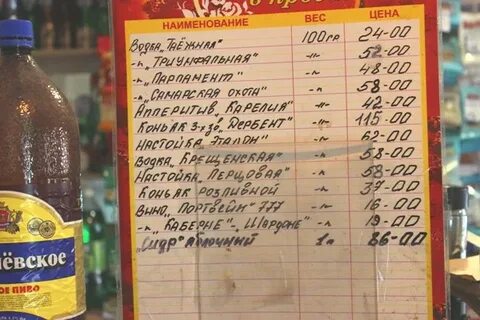 в кредит
НАИМЕНОВАНИЕ ВЕС ЦЕНА
Водка „Таёжная" 100гр 24-00
-"- „Триумфальная" -"- 52-00
-"- „Парламент" -"- 48-00
-"- „Самарская охота" -"- 58-00
Апперитив „Карелия" -"- 42-00
Коньяк 3-х зв. „Дербент" -"- 115-00
Настойка „Эталон" -"- 62-00
Водка „Крещенская" -"- 58-00
Настойка „Перцовая" -"- 58-00
Коньяк розливной -"- 37-00
Вино „Портвейн" 777 -"- 16-00
-"- „Каберне"-„Шардоне" -"- 19-00
„Сидр" яблочный 1л 86-00
ЛЁВСКОЕ
ОЕ ПИВО